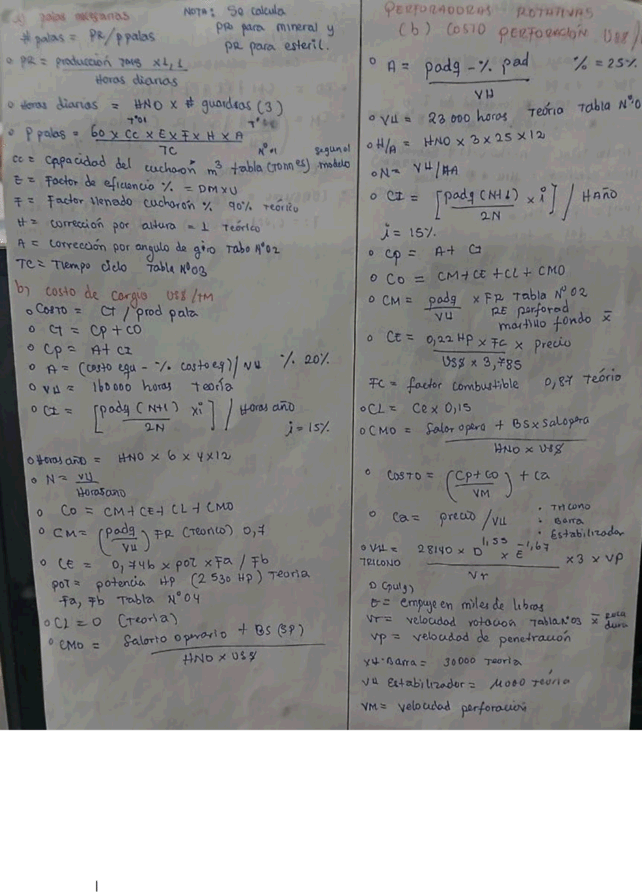 a) palas necesarias
NOTA: Se calcula
PR para mineral y
PR para esteril.
# palas = PR/P palas
PR = producción TMS x 1,1
Horas diarias
Horas diarias = HNO x # guardias (3)
P palas = 60 x Cc x E x F x H x A
TC
Cc = Capacidad del cucharón m³ tabla (tonnes) segun el modelo
E = Factor de eficiencia % = DM x U
F = Factor llenado cucharón % 90% Teórico
H = corrección por altura = 1 Teórico
A = corrección por angulo de giro Tabo Nº02
TC = Tiempo ciclo Tabla Nº03
b) costo de carguio US$/TM
Costo = CT / prod pala
CT = CP + CO
CP = A + CI
A = (costo equ - % costo eq) / VU % 20%
VU = 160000 horas Teoría
CI = [padq (N+1) x i] / Horas año
2N
i = 15%
Horas año = HNO x 6 x 4 x 12
N = VU
Horas año
CO = CM + CE + CL + CMO
CM = (padq) FR (Teorico) 0,7
VU
CE = 0,746 x POT x Fa / Fb
POT = potencia HP (2530 HP) Teoria
Fa, Fb Tabla Nº04
CL = 0 (Teoria)
CMO = Salario operario + BS (SP)
HNO x US$
PERFORADORAS ROTATIVAS
(b) COSTO PERFORACIÓN US$/
A = padq - % pad
VU
% = 25%
VU = 23 000 horas Teoría Tabla Nº0
H/A = HNO x 3 x 25 x 12
N = VU/HA
CI = [padq (N+1) x i] / H AÑO
2N
i = 15%
Cp = A + CI
CO = CM + CE + CL + CMO
CM = padq x FR Tabla Nº02
VU
RE perforad
martillo fondo x̄
CE = 0,22 HP x FC x precio
US$ x 3,785
FC = factor combustible 0,87 Teórico
CL = Ce x 0,15
CMO = Salar opera + BS x Sal opera
HNO x US$
COSTO = (Cp + CO) + Ca
VM
Ca = precio / VU
· Tricono
· Barra
· Estabilizador
VU = 28140 x D^1,55 x E^-1,67 x 3 x VP
TRICONO
Vr
D (pulg)
E = empuje en miles de libras
Vr = velocidad rotación Tabla Nº03 x̄ roca dura
VP = velocidad de penetración
VU Barra = 30000 Teoria
VU Estabilizador = 11000 Teória
VM = velocidad perforación